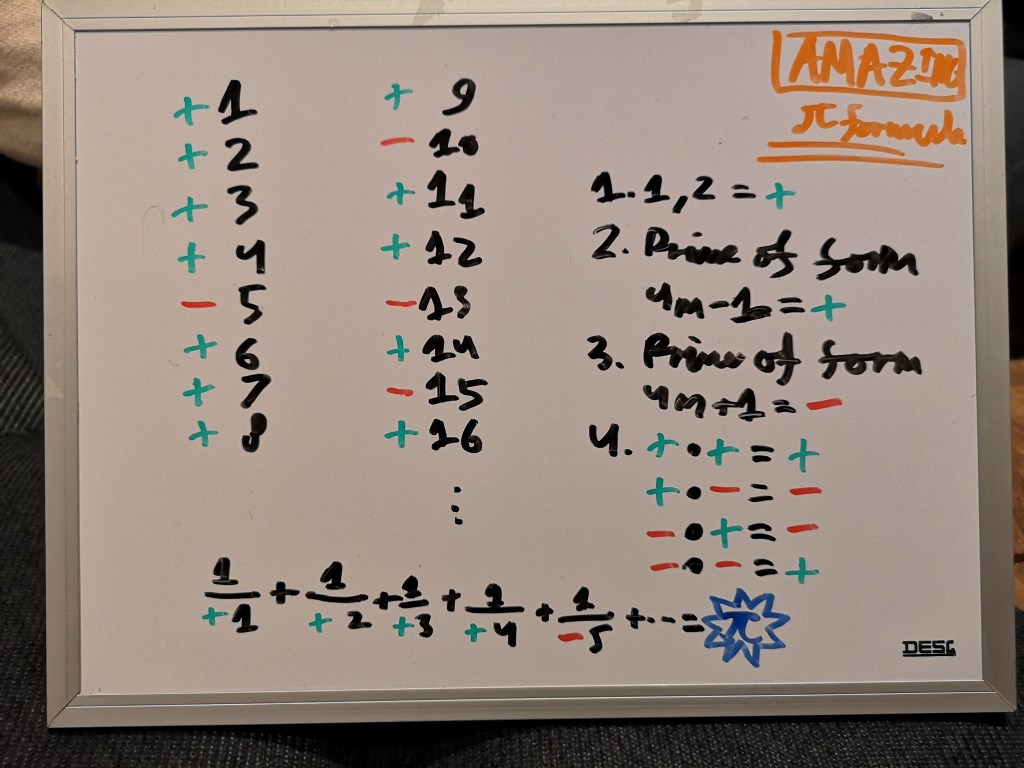 AMAZING
π formula
+1
+2
+3
+4
−5
+6
+7
+8
+9
−10
+11
+12
−13
+14
−15
+16
⋮
1. 1,2 = +
2. Prime of form
4m−1 = +
3. Prime of form
4m+1 = −
4. + • + = +
+ • − = −
− • + = −
− • − = +
1/+1 + 1/+2 + 1/+3 + 1/+4 + 1/−5 + ··· = π
DESG